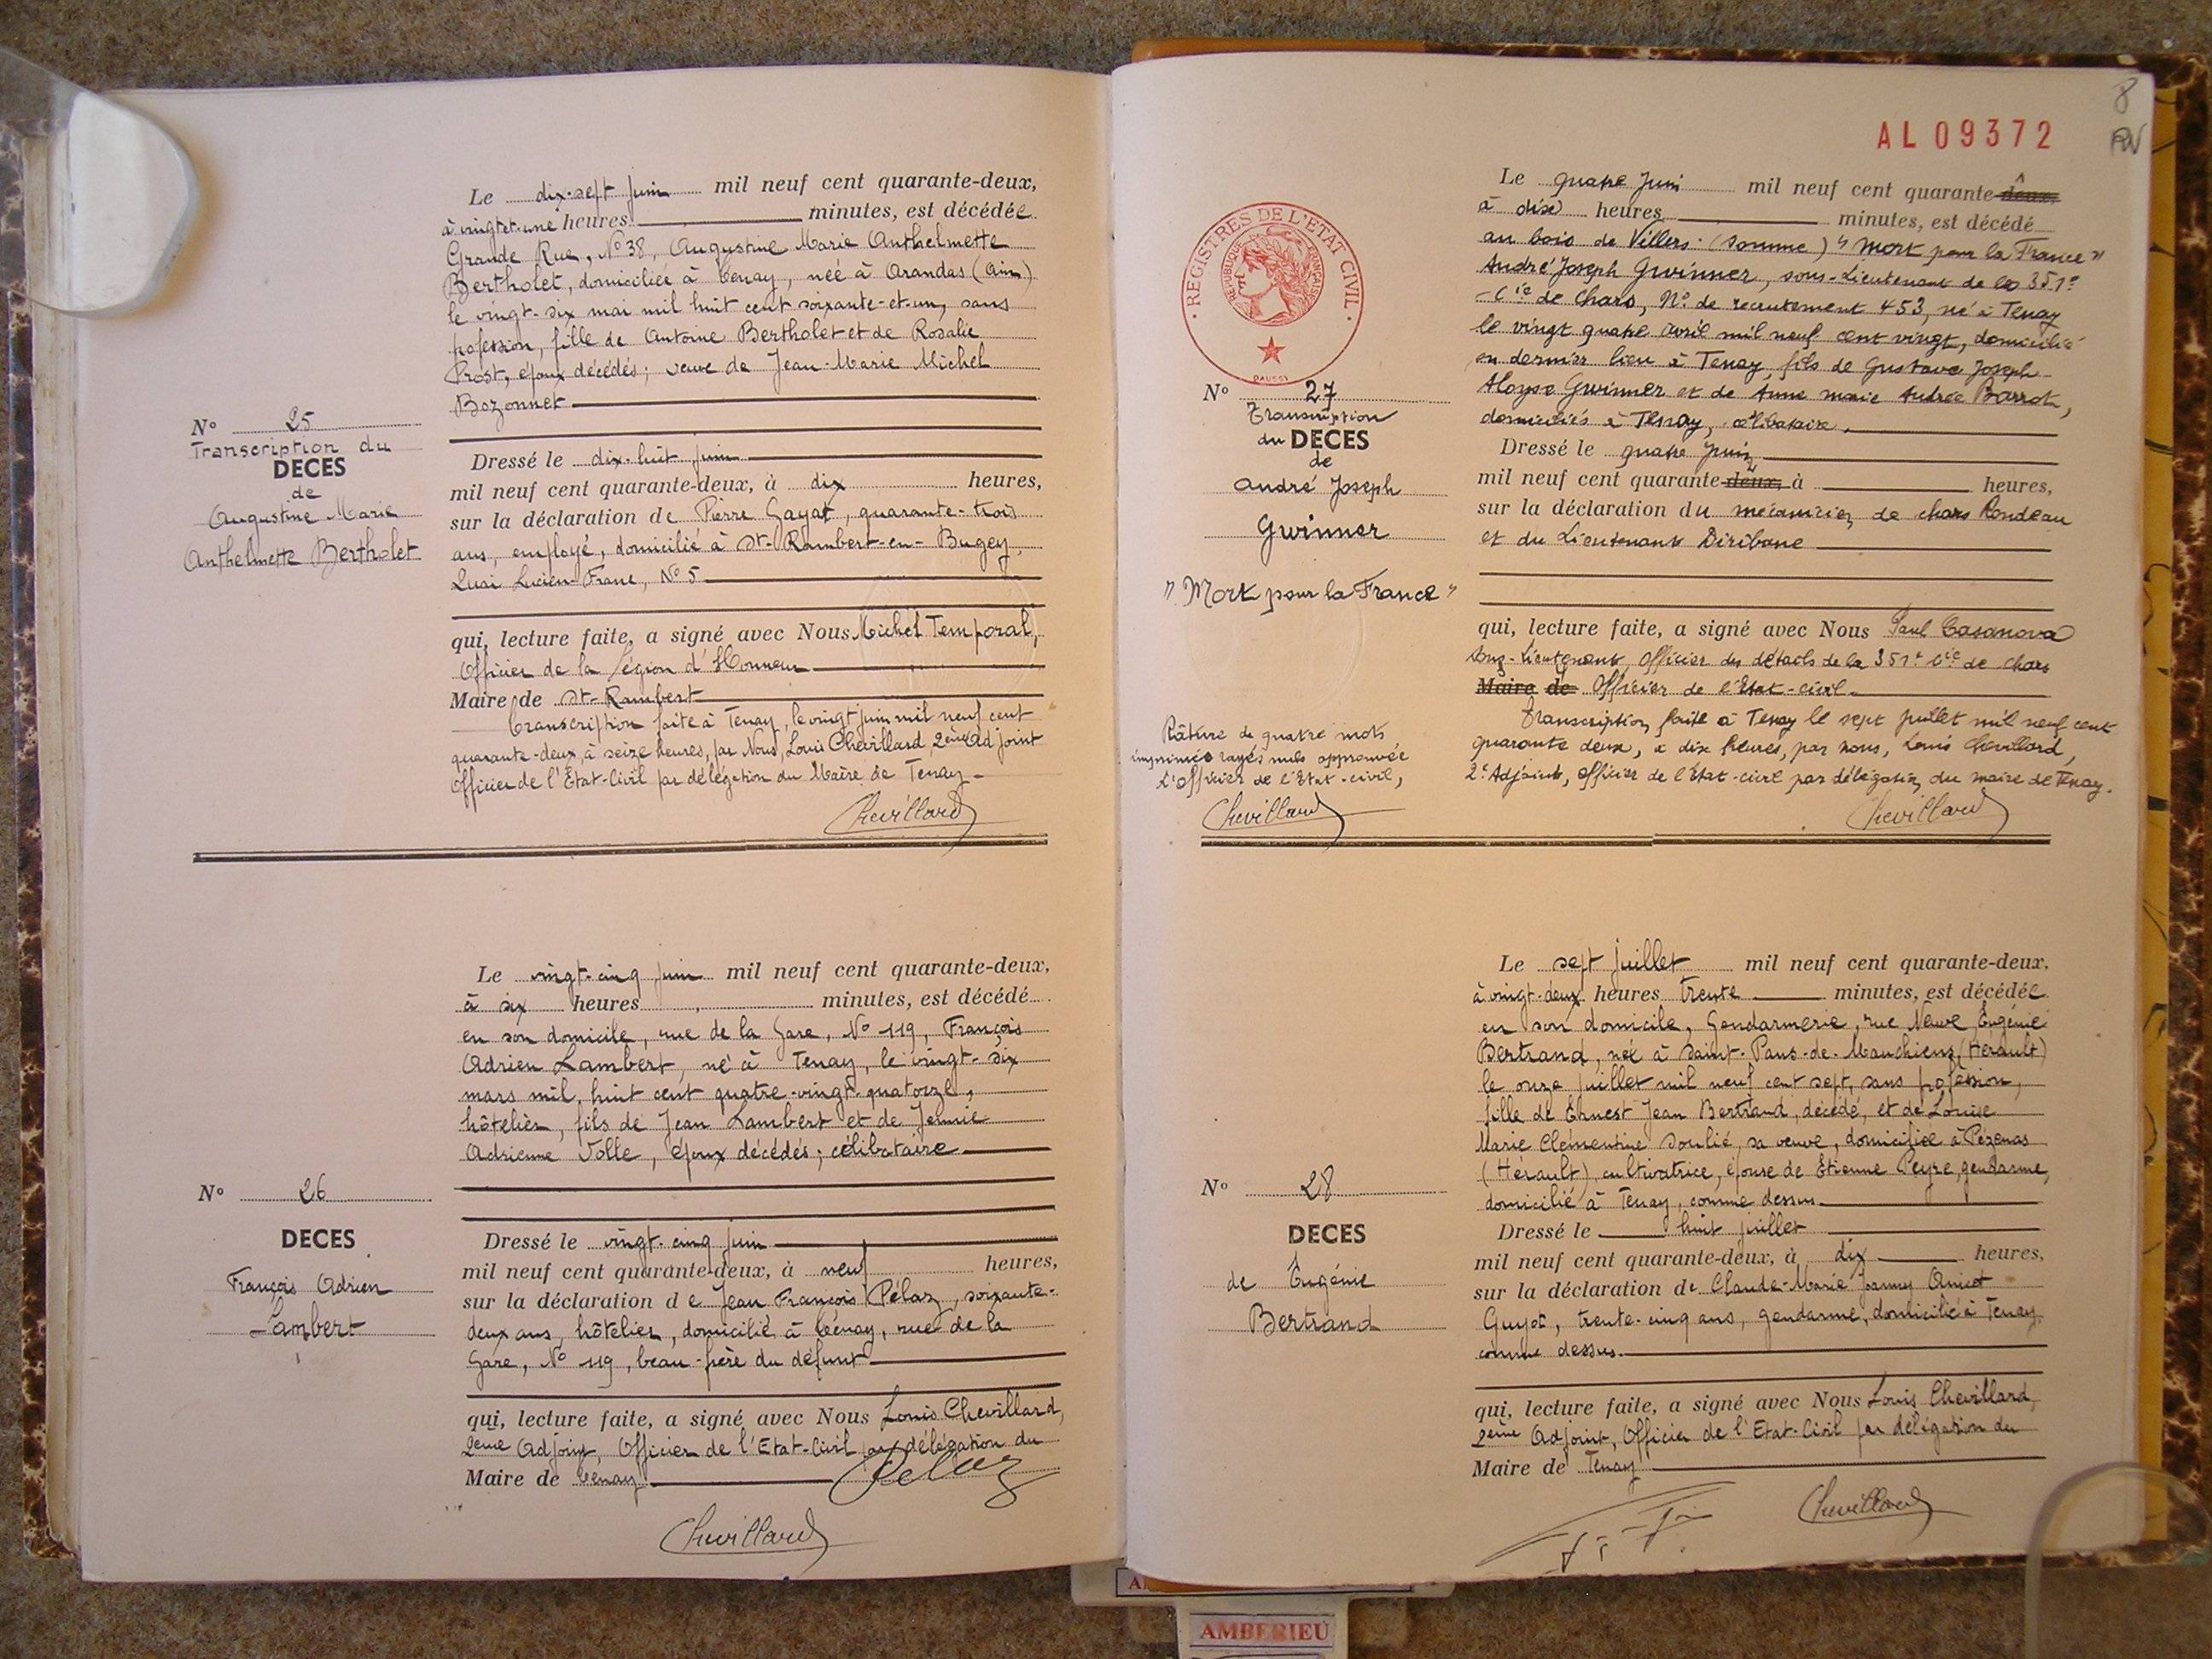 Le dix-sept juin mil neuf cent quarante-deux,
à vingt-et-une heures minutes, est décédée
Grande Rue, N° 38, Augustine Marie Anthelmette
Bertholet, domiciliée à Tenay, née à Arandas (Ain)
le vingt-six mai mil huit cent soixante-et-un, sans
profession, fille de Antoine Bertholet et de Rosalie
Prost, époux décédés; veuve de Jean-Marie Michel
Bozonnet
N° 25
Transcription du
DECES
de
Augustine Marie
Anthelmette Bertholet
Dressé le dix-huit juin
mil neuf cent quarante-deux, à dix heures,
sur la déclaration de Pierre Gayat, quarante-trois
ans, employé, domicilié à St-Rambert-en-Bugey,
Quai Lucien Franc, N° 5
qui, lecture faite, a signé avec Nous Michel Temporal,
Officier de la Légion d'Honneur
Maire de St-Rambert
Transcription faite à Tenay, le vingt juin mil neuf cent
quarante-deux, à seize heures, par Nous, Louis Chevillard, 2ème Adjoint
Officier de l'Etat-Civil par délégation du Maire de Tenay
Chevillard
Le vingt-cinq juin mil neuf cent quarante-deux,
à six heures minutes, est décédé
en son domicile, rue de la Gare, N° 119, François
Adrien Lambert, né à Tenay, le vingt-six
mars mil huit cent quatre-vingt-quatorze,
hôtelier, fils de Jean Lambert et de Jennie
Adrienne Volle, époux décédés; célibataire
N° 26
DECES
François Adrien
Lambert
Dressé le vingt-cinq juin
mil neuf cent quarante-deux, à neuf heures,
sur la déclaration de Jean François Pélaz, soixante-
deux ans, hôtelier, domicilié à Tenay, rue de la
Gare, N° 119, beau-frère du défunt
qui, lecture faite, a signé avec Nous Louis Chevillard,
2ème Adjoint, Officier de l'Etat-Civil par délégation du
Maire de Tenay
Pelaz
Chevillard
8
AL 09372
REGISTRES DE L'ETAT CIVIL
REPUBLIQUE FRANÇAISE
Le quatre juin mil neuf cent quarante deux,
à dix heures minutes, est décédé
au bois de Villers (Somme) "Mort pour la France"
André Joseph Gwinner, sous-Lieutenant de la 351e
Cie de Chars, N° de recrutement 453, né à Tenay
le vingt quatre avril mil neuf cent vingt, domicilié
en dernier lieu à Tenay, fils de Gustave Joseph
Aloyse Gwinner et de Anne Marie Andrée Barrot,
domiciliés à Tenay, célibataire.
N° 27
Transcription
du DECES
de
André Joseph
Gwinner
"Mort pour la France"
Dressé le quatre juin
mil neuf cent quarante-deux, à heures,
sur la déclaration du mécanicien de chars Rondeau
et du Lieutenant Diribane
qui, lecture faite, a signé avec Nous Paul Casanova
Sous-Lieutenant, Officier des détails de la 351e Cie de chars
Maire de Officier de l'Etat-civil.
Transcription faite à Tenay le sept juillet mil neuf cent
quarante deux, à dix heures, par nous, Louis Chevillard,
2e Adjoint, Officier de l'Etat-civil par délégation du maire de Tenay.
Chevillard
Râture de quatre mots
imprimés rayés nuls approuvée
L'Officier de l'Etat-civil,
Chevillard
Le sept juillet mil neuf cent quarante-deux,
à vingt-deux heures trente minutes, est décédée
en son domicile, Gendarmerie, rue Neuve, Eugénie
Bertrand, née à Saint-Pons-de-Mauchiens (Hérault)
le onze juillet mil neuf cent sept, sans profession,
fille de Ernest Jean Bertrand, décédé, et de Louise
Marie Clémentine Soulié, sa veuve, domiciliée à Pézenas
(Hérault), cultivatrice, épouse de Etienne Peyre, gendarme,
domicilié à Tenay, comme dessus
N° 28
DECES
de Eugénie
Bertrand
Dressé le huit juillet
mil neuf cent quarante-deux, à dix heures,
sur la déclaration de Claude-Marie Joanny Anicet
Guyot, trente-cinq ans, gendarme, domicilié à Tenay
comme dessus.
qui, lecture faite, a signé avec Nous Louis Chevillard,
2ème Adjoint, Officier de l'Etat-Civil par délégation du
Maire de Tenay
Chevillard
AMBERIEU